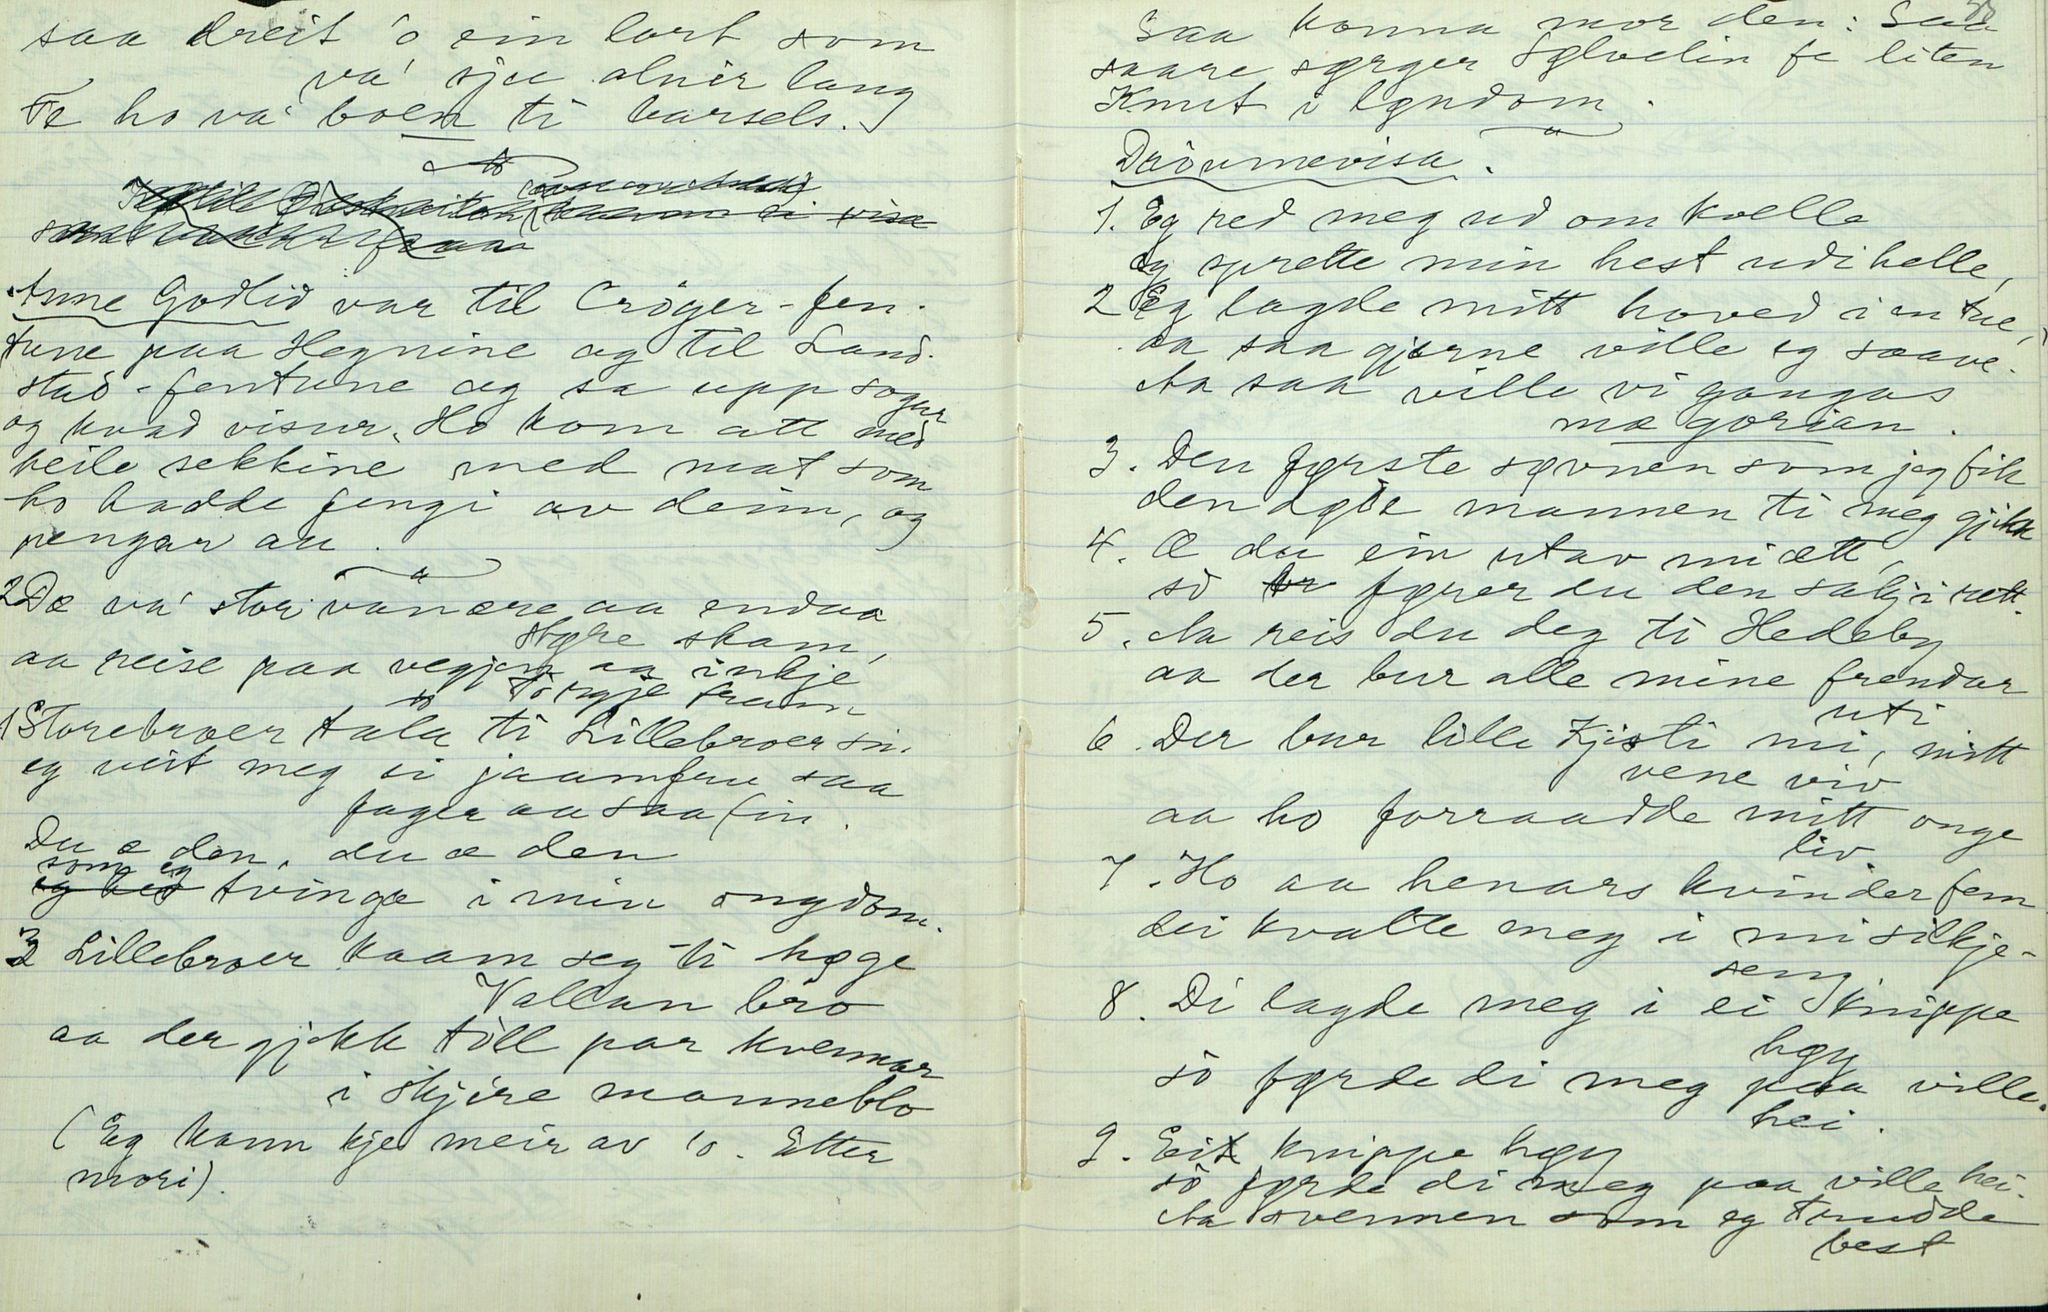 saa dreit 'o ein lort som
va' sju alnir lang
Te ho va' boen ti barsels.
Anne Godlid var til Crøger-fen-
tune paa Hegnine og til Land-
stad-fentune og sa upp sogur
og kvad visur. Ho kom att med
heile sekkine med mat som
ho hadde fengi av deim, og
pengar au.
2 Dæ va' stor vanære aa endaa
støre skam,
aa reise paa vegjen aa inkje
tørgje fram
1 Storebroer tala ti Lillebroer sin.
eg veit meg ei jaamfru saa
fager aa saa fin.
Du æ den, du æ den
som eg
eg tvinga i min ongdom.
3 Lillebroer kaam seg ti høge
Vallan bro
aa der gjekk till par kvennar
i skjire manneblo
(Eg kann kje meir av 'o. Etter
mori).
Saa konna mor den: Saa
saare sørger Sølvelin fe liten
Knut i løndom.
Drøumevisa.
1. Eg red meg ud om kvelle
eg sprette min hest udi helle,
2 Eg lagde mitt hoved i en tue,
aa saa gjerne ville eg saave.
Aa saa ville vi gangas
mæ gorian.
3. Den første søvnen som jeg fik
den døde mannen ti meg gjikk
4. Æ du ein utav mi ætt,
so fører du den sakj i rett.
5. Aa reis du deg ti Hedeby
aa der bur alle mine frendar
uti
6. Der bur lille Kjisti mi, mitt
vene viv
aa ho forraadde mitt onge
liv.
7. Ho aa henars kvinder fem
dei kvalte meg i mi silkje-
seng.
8. Di lagde meg i ei knippe
høy
so førde di meg paa ville
hei.
9. Eit knippe høy
so førde di meg paa ville hei.
Aa svennen som eg trudde
best